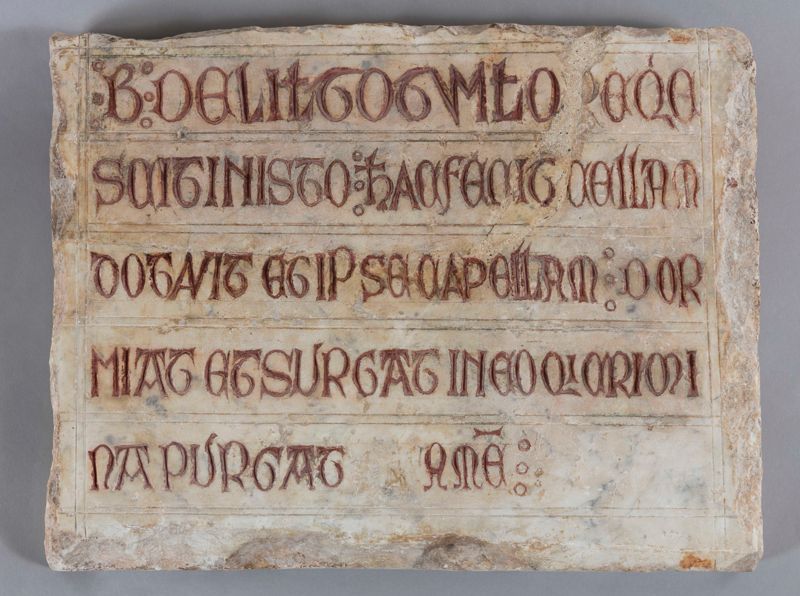 :B: DE LIŁTO TVMŁO REQE
SCIT IN ISTO : HAC FECIT CELLAM
DOTAVIT ET IPSE CAPELLAM : DOR
MIAT ET SURGAT IN EO QI CRIMI
NA PURGAT AMĒ :